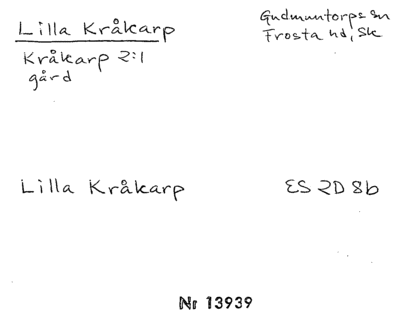 Lilla Kråkarp
Gudmuntorps sn
Frosta hd, Sk
Kråkarp 2:1
gård
Lilla Kråkarp
ES 2D 8b
Nr 13939